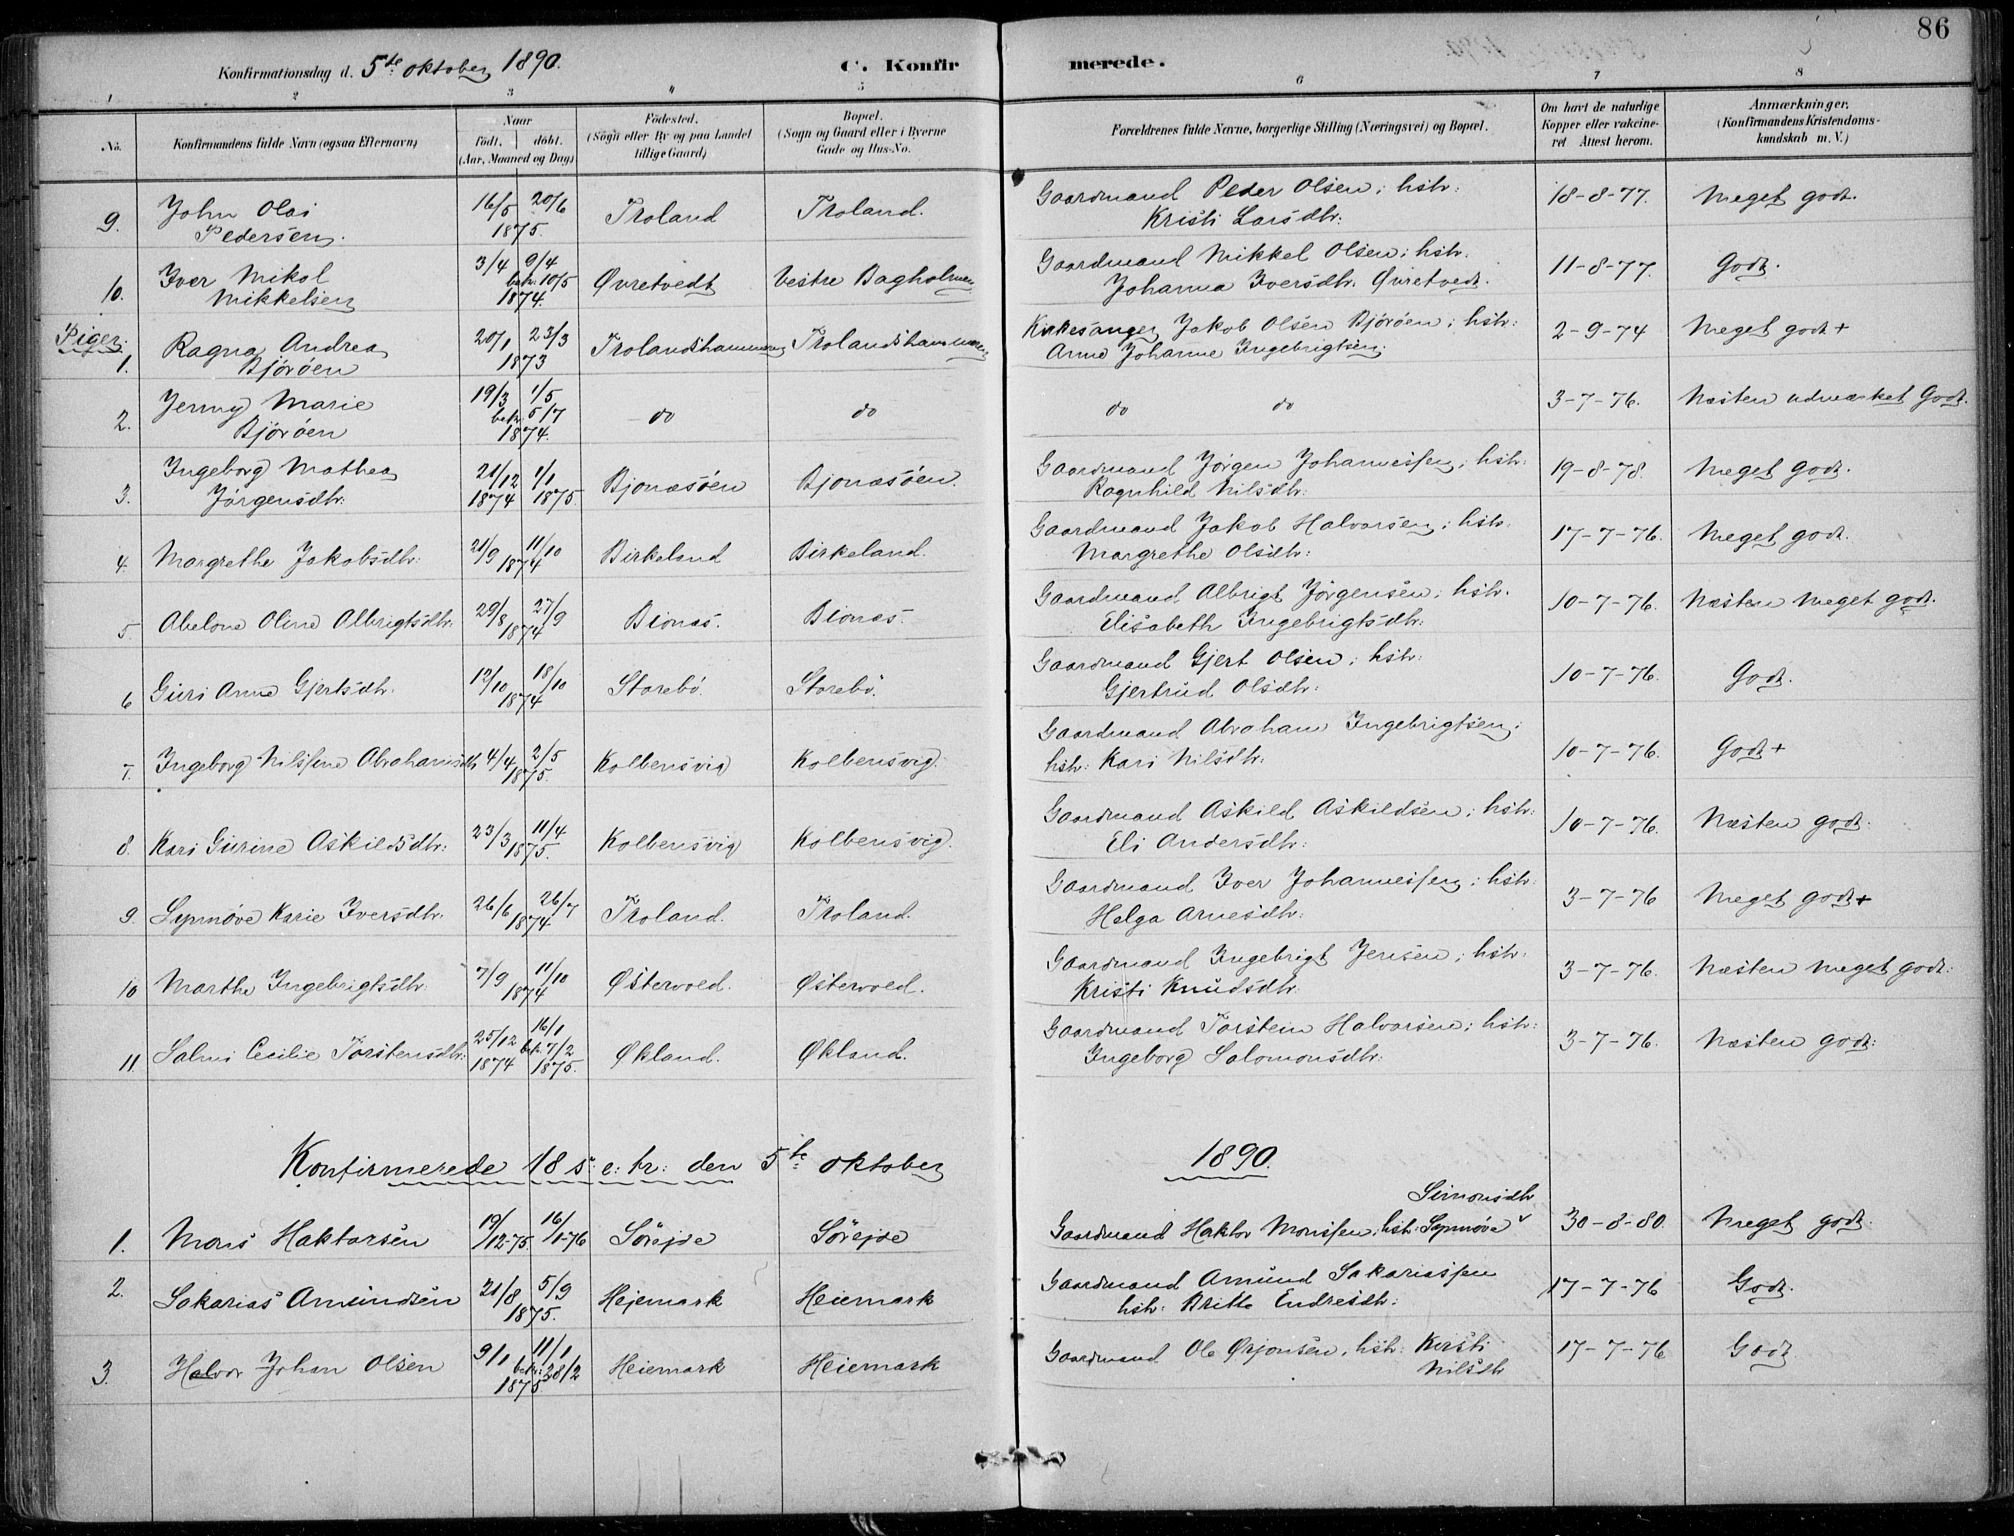 86
Konfirmationsdag d. 5te oktober 1890. C. Konfirmerede.
1 2 3 4 5 6 7 8
No. Konfirmandens fulde Navn (ogsaa Efternavn) Naar født. døbt. (Aar, Maaned og Dag) Fødested. (Sogn eller By og paa Landet tillige Gaard) Bopæl. (Sogn og Gaard eller i Byerne Gade og Hus-No. Forældrenes fulde Navne, borgerlige Stilling (Næringsvei) og Bopæl. Om havt de naturlige Kopper eller vakcineret Attest herom. Anmærkninger. (Konfirmandens Kristendomskundskab m. V.)
9. John Olai Pedersen. 16/5 20/6 1875. Troland Troland. Gaardmand Peder Olsen; hstr: Kristi Larsdtr: 18-8-77. Meget godt.
10. Iver Mikal Mikkelsen 3/4 9/4 bekr. 10/5 1874. Øvretvedt Vestre Bagholmen Gaardmand Mikkel Olsen; hstr. Johanna Iversdtr. Øvretvedt. 11-8-77. Godt.
Piger:
1. Ragna Andrea Bjørøen 20/1 23/3 1873 Trolandshammeren Trolandshammeren Kirkesanger Jakob Olsen Bjørøen; hstr: Anne Johanne Ingebrigtsen. 2-9-74 Meget godt+
2. Jenny Marie Bjørøen 19/3 1/5 bekr. 5/7 1874. do do do do 3-7-76. Næsten udmærket Godt.
3. Ingeborg Mathea Jørgensdtr: 21/12 1874 1/1 1875. Bjonæsøen Bjonæsøen. Gaardmand Jørgen Johannessen; hstr: Ragnhild Nilsdtr: 19-8-78. Meget godt.
4. Margrethe Jakobsdtr: 21/9 11/10 1874 Birkeland Birkeland. Gaardmand Jakob Halvorsen; hstr. Margrethe Olsdtr: 17-7-76. Meget godt.
5 Abelone Oline Albrigtsdtr. 29/8 27/9 1874 Bionæs. Bionæs. Gaardmand Albrigt Jørgensen; hstr. Elisabeth Ingebrigtsdtr: 10-7-76. Næsten meget godt.
6 Guri Anne Gjertsdtr. 12/10 18/10 1874 Storebø. Storebø. Gaardmand Gjert Olsen; hstr: Gjertrud Olsdtr: 10-7-76. Godt.
7. Ingeborg Nilsine Abrahamsdtr 4/4 2/5 1875. Kolbensvig Kolbensvig. Gaardmand Abraham Ingebrigtsen; hstr: Kari Nilsdtr: 10-7-76. Godt+
8. Kari Gurine Askildsdtr: 23/3 11/4 1875. Kolbensvig Kolbensvig. Gaardmand Askild Askildsen; hstr: Eli Andersdtr: 10-7-76. Næsten godt.
9. Synnøve Karie Iversdtr. 26/6 26/7 1874 Troland. Troland. Gaardmand Iver Johannessen; hstr: Helga Arnesdtr: 3-7-76 Meget godt+
10 Marthe Ingebrigtsdtr. 7/9 11/10 1874 Østervold. Østervold. Gaardmand Ingebrigt Jensen; hstr: Kristi Knudsdtr. 3-7-76. Næsten meget godt:
11 Salmi Cecilie Torstensdtr: 25/12 1874 16/1 bek. 7/2 1875. Økland. Økland. Gaardmand Torstein Halvorsen; hstr: Ingeborg Salomonsdtr: 3-7-76. Næsten godt:
Konfirmerede 18 s: e: tr: den 5te oktober 1890.
1. Mons Haktorsen 19/12-75. 16/1-76 Sørejde Sørejde Gaardmand Haktor Monssen, hstr: Synnøve Simonsdtr 30-8-80. Meget godt.
2. Sakarias Amundsen 21/8 5/9 1875. Hejemark Heiemark Gaardmand Amund Sakariassen hstr: Britte Endresdtr: 17-7-76 Godt.
3. Halvor Johan Olsen 9/1 11/1 bekr: 28/2 1875 Heiemark Heiemark Gaardmand Ole Ørjansen, hstr: Kersti Nilsdtr 17-7-76 Godt